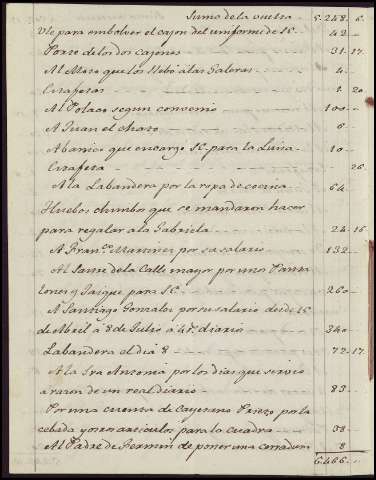 Suma de la vuelta - 5.248. 6.
Ule para embolver el cajon del uniforme de SE. 42 ..
Porte de los dos cajones 31. 17.
Al Mozo que los llebó a las Galeras 4 ..
Garafetas 1. 20
Al Polaco segun convenio 100 ..
A Juan el chato 6 ..
Abanico que encargó SE. para la Luisa 10 ..
Garafeta 26
A la Labandera por la ropa de cocina 64 ..
Huebos chumbos que se mandaron hacer
para regalar a la Gabriela 24. 16
A Franco. Martinez por su salario 132 ..
Al Sastre de la Calle mayor por unos Panta
lones y Jaique para SE. 260 ..
A Santiago Gonzalez por su salario desde 15
de Abril á 8 de Julio á 4 rs. diario 340 ..
Labandera el dia 8 72. 17.
A la Sra Antonia por los dias que sirvió
a razon de un real diario 83 ..
Por una cuenta de Cayetano Prieto por la
cebada y otros articulos para la cuadra 38 ..
Al Padre de Fermin de poner una cerradura 8
6.466 ..